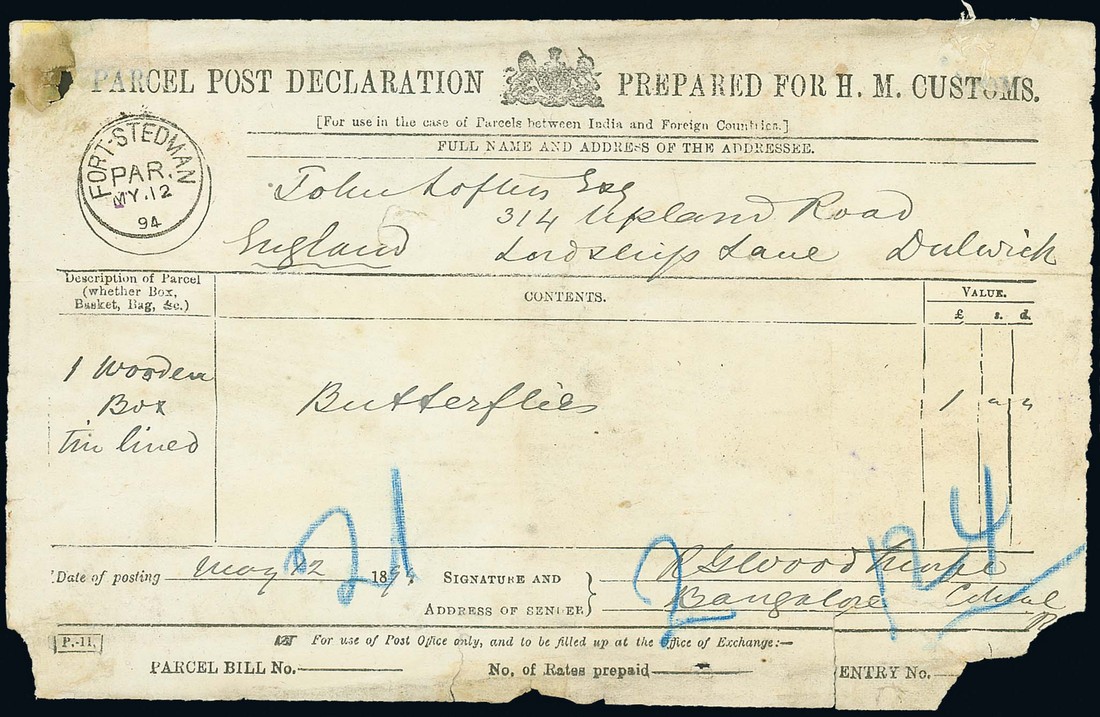 PARCEL POST DECLARATION PREPARED FOR H. M. CUSTOMS.
[For use in the case of Parcels between India and Foreign Countries.]
FULL NAME AND ADDRESS OF THE ADDRESSEE.
FORT-STEDMAN
PAR.
MY.12
94
John Loftus Esq
314 Upland Road
England Lordship Lane Dulwich
Description of Parcel
(whether Box,
Basket, Bag, &c.)
CONTENTS.
VALUE.
£ s. d.
1 Wooden
Box
tin lined
Butterflies
1 " "
21
2
Date of posting May 12 1894
SIGNATURE AND
ADDRESS OF SENDER
R G Woodthorpe
Bangalore Colonel
P.-11.
For use of Post Office only, and to be filled up at the Office of Exchange:—
PARCEL BILL No.
No. of Rates prepaid
ENTRY No.